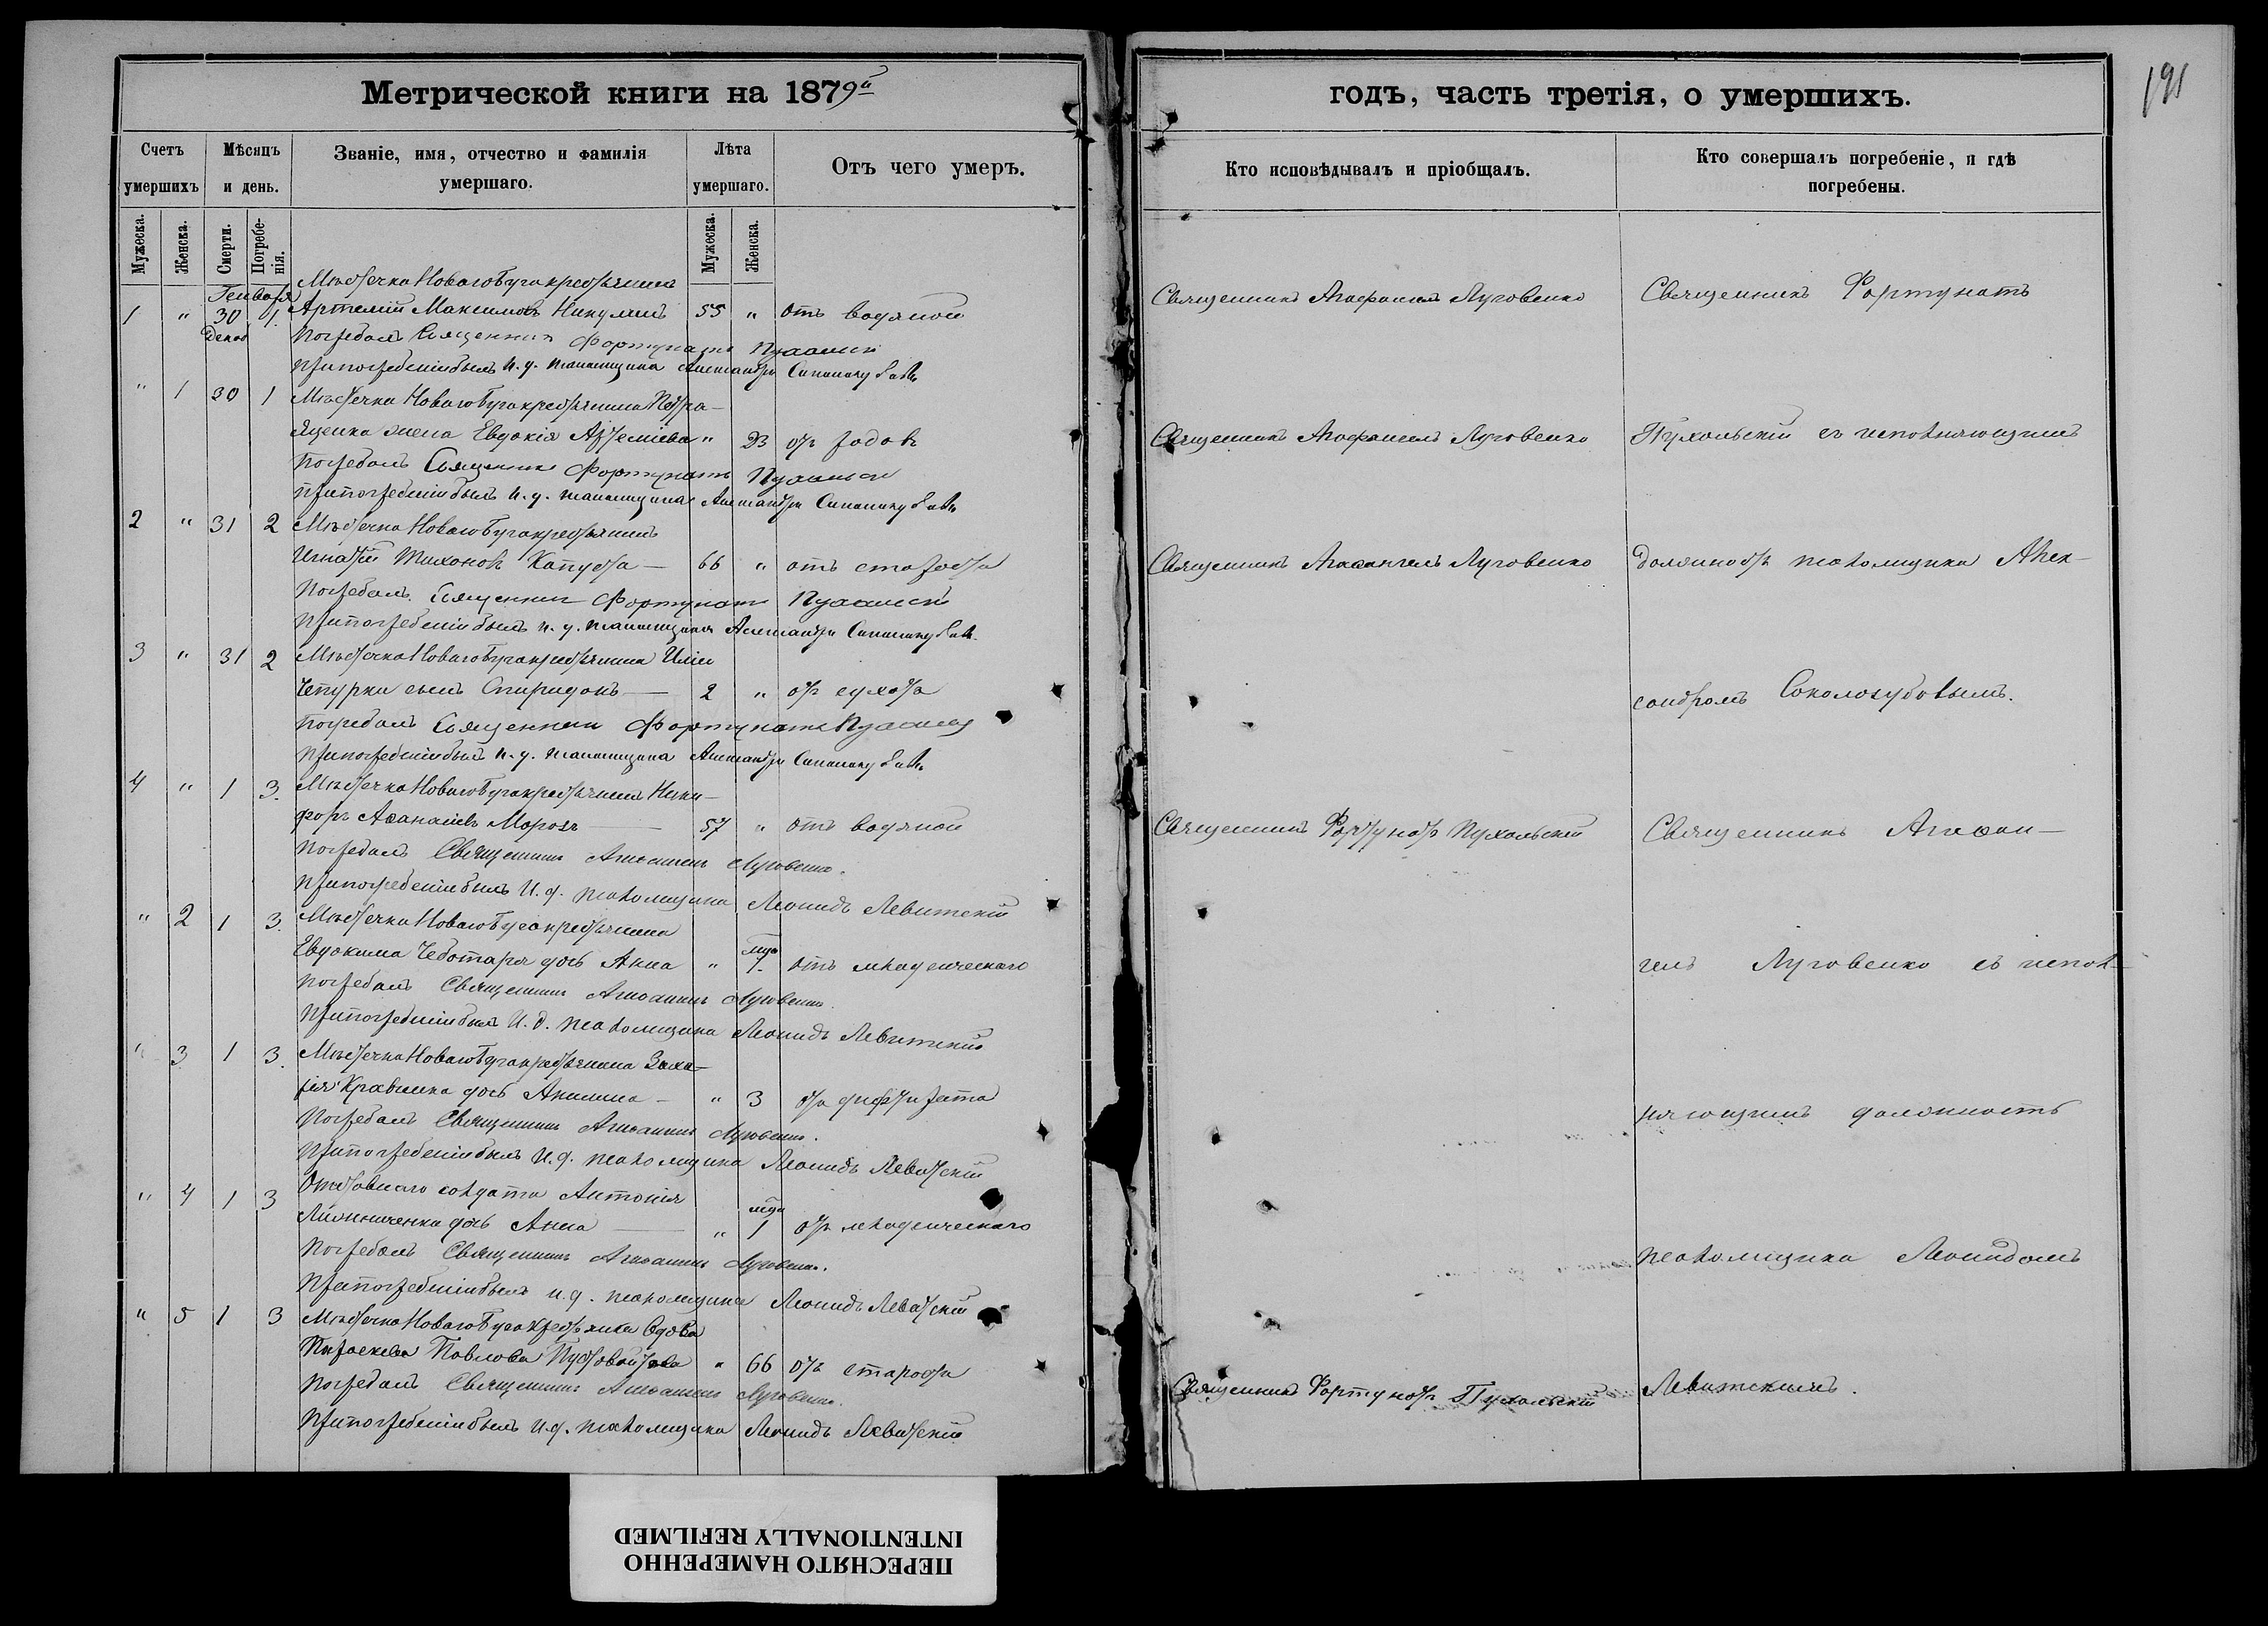 Метрической книги на 1879й
годъ, часть третія, о умершихъ.
191
Счетъ умершихъ
Мѣсяцъ и день.
Званіе, имя, отчество и фамилія умершаго.
Лѣта умершаго.
Отъ чего умеръ.
Кто исповѣдывалъ и пріобщалъ.
Кто совершалъ погребеніе, и гдѣ погребены.
Мужеска.
Женска.
Смерти.
Погребенія.
Мужеска.
Женска.
Мѣстечка Новаго Буга крестьянинъ
Генваря
1 " 30 1. Артемій Максимовъ 55 " отъ водяной
Священникъ Агафангелъ Луговенко
Священникъ Фортунатъ
Декаб
Погребалъ Священник Фортунатъ
При погребеніи былъ и. д. псаломщика Александръ
" 1 30 1 Мѣстечка Новаго Буга крестьянина Петра
Яценка жена Евдокія Артеміева " 23 отъ родовъ
Священникъ Агафангелъ Луговенко
Пухальскій съ исполняющимъ
Погребалъ Священник Фортунатъ
При погребеніи былъ и. д. псаломщика Александръ
2 " 31 2 Мѣстечка Новаго Буга крестьянинъ
Игнатій Тихоновъ Капуста — 66 " отъ старости
Священникъ Агафангелъ Луговенко
должность псаломщика Алек-
Погребалъ Священник Фортунатъ
При погребеніи былъ и. д. псаломщика Александръ
3 " 31 2 Мѣстечка Новаго Буга крестьянина Иліи
Чепурки сынъ Спиридонъ — 2 " отъ сухоты
сандромъ Сокологубовымъ.
Погребалъ Священник Фортунатъ
При погребеніи былъ и. д. псаломщика Александръ
4 " 1 3. Мѣстечка Новаго Буга крестьянинъ Ники-
форъ Аѳанасіевъ Морозъ — 57 " отъ водяной
Священникъ Фортунатъ Пухальскій
Священникъ Агаѳан-
Погребалъ Священникъ Агаѳангелъ Луговенко.
При погребеніи былъ И. д. псаломщика Леонидъ Левитскій
" 2 1 3. Мѣстечка Новаго Буга крестьянина
Евдокима Чеботаря дочь Анна " 1. отъ младенческаго
гелъ Луговенко съ испол-
Погребалъ Священникъ Агаѳангелъ Луговенко.
При погребеніи былъ И. д. псаломщика Леонидъ Левитскій
" 3 1 3. Мѣстечка Новаго Буга крестьянина Заха-
рія Кравченка дочь Акилина — " 3 отъ дифтерита
няющимъ должность
Погребалъ Священникъ Агаѳангелъ Луговенко.
При погребеніи былъ И. д. псаломщика Леонидъ Левитскій
" 4 1 3 Отставнаго солдата Антонія
дочь Анна — " 1 отъ младенческаго
псаломщика Леонидомъ
Погребалъ Священникъ Агаѳангелъ Луговенко.
При погребеніи былъ и. д. псаломщика Леонидъ Левитскій
" 5 1 3 Мѣстечка Новаго Буга крестьянка вдова
Параскева Павлова Пустовойтова " 66 отъ старости
Священникъ Фортунатъ Пухальскій
Левитскимъ.
Погребалъ Священникъ Агаѳангелъ Луговенко.
При погребеніи былъ И. д. псаломщика Леонидъ Левитскій
ПЕРЕСНЯТО НАМЕРЕННО
INTENTIONALLY REFILMED